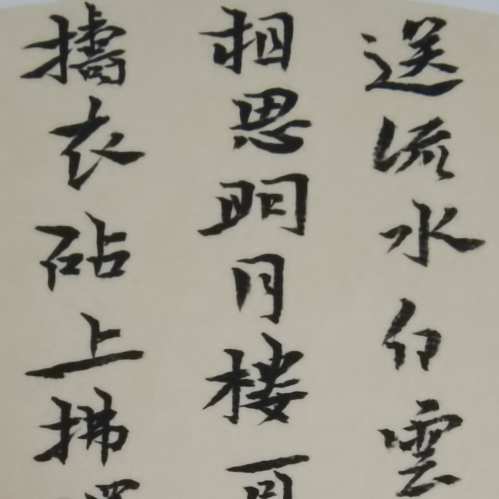 送流水白雲
相思明月楼可
擣衣砧上拂還